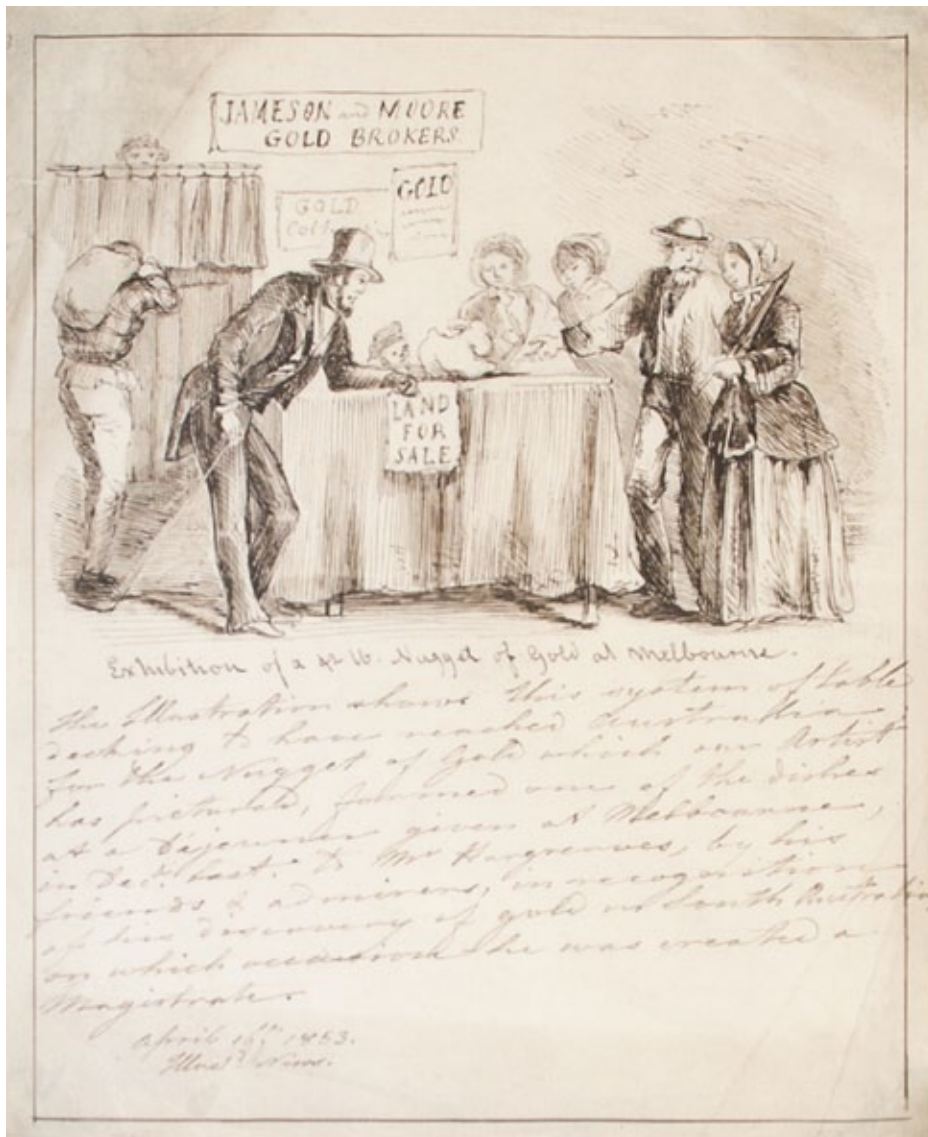 JAMESON and MOORE
GOLD BROKERS
GOLD
GOLD
LAND
FOR
SALE
Exhibition of a lb. Nugget of Gold at Melbourne.
The Illustration shows this system of table
decking to have reached Australia
for the Nugget of Gold which our Artist
has pictured, formed one of the dishes
at a Déjeuner given at Melbourne,
in Decr. last. to Mr Hargreaves, by his
friends & admirers, in recognition
of his discovery of gold in South Australia
on which occasion he was created a
Magistrate.
April 16th 1853.
Illusd. News.